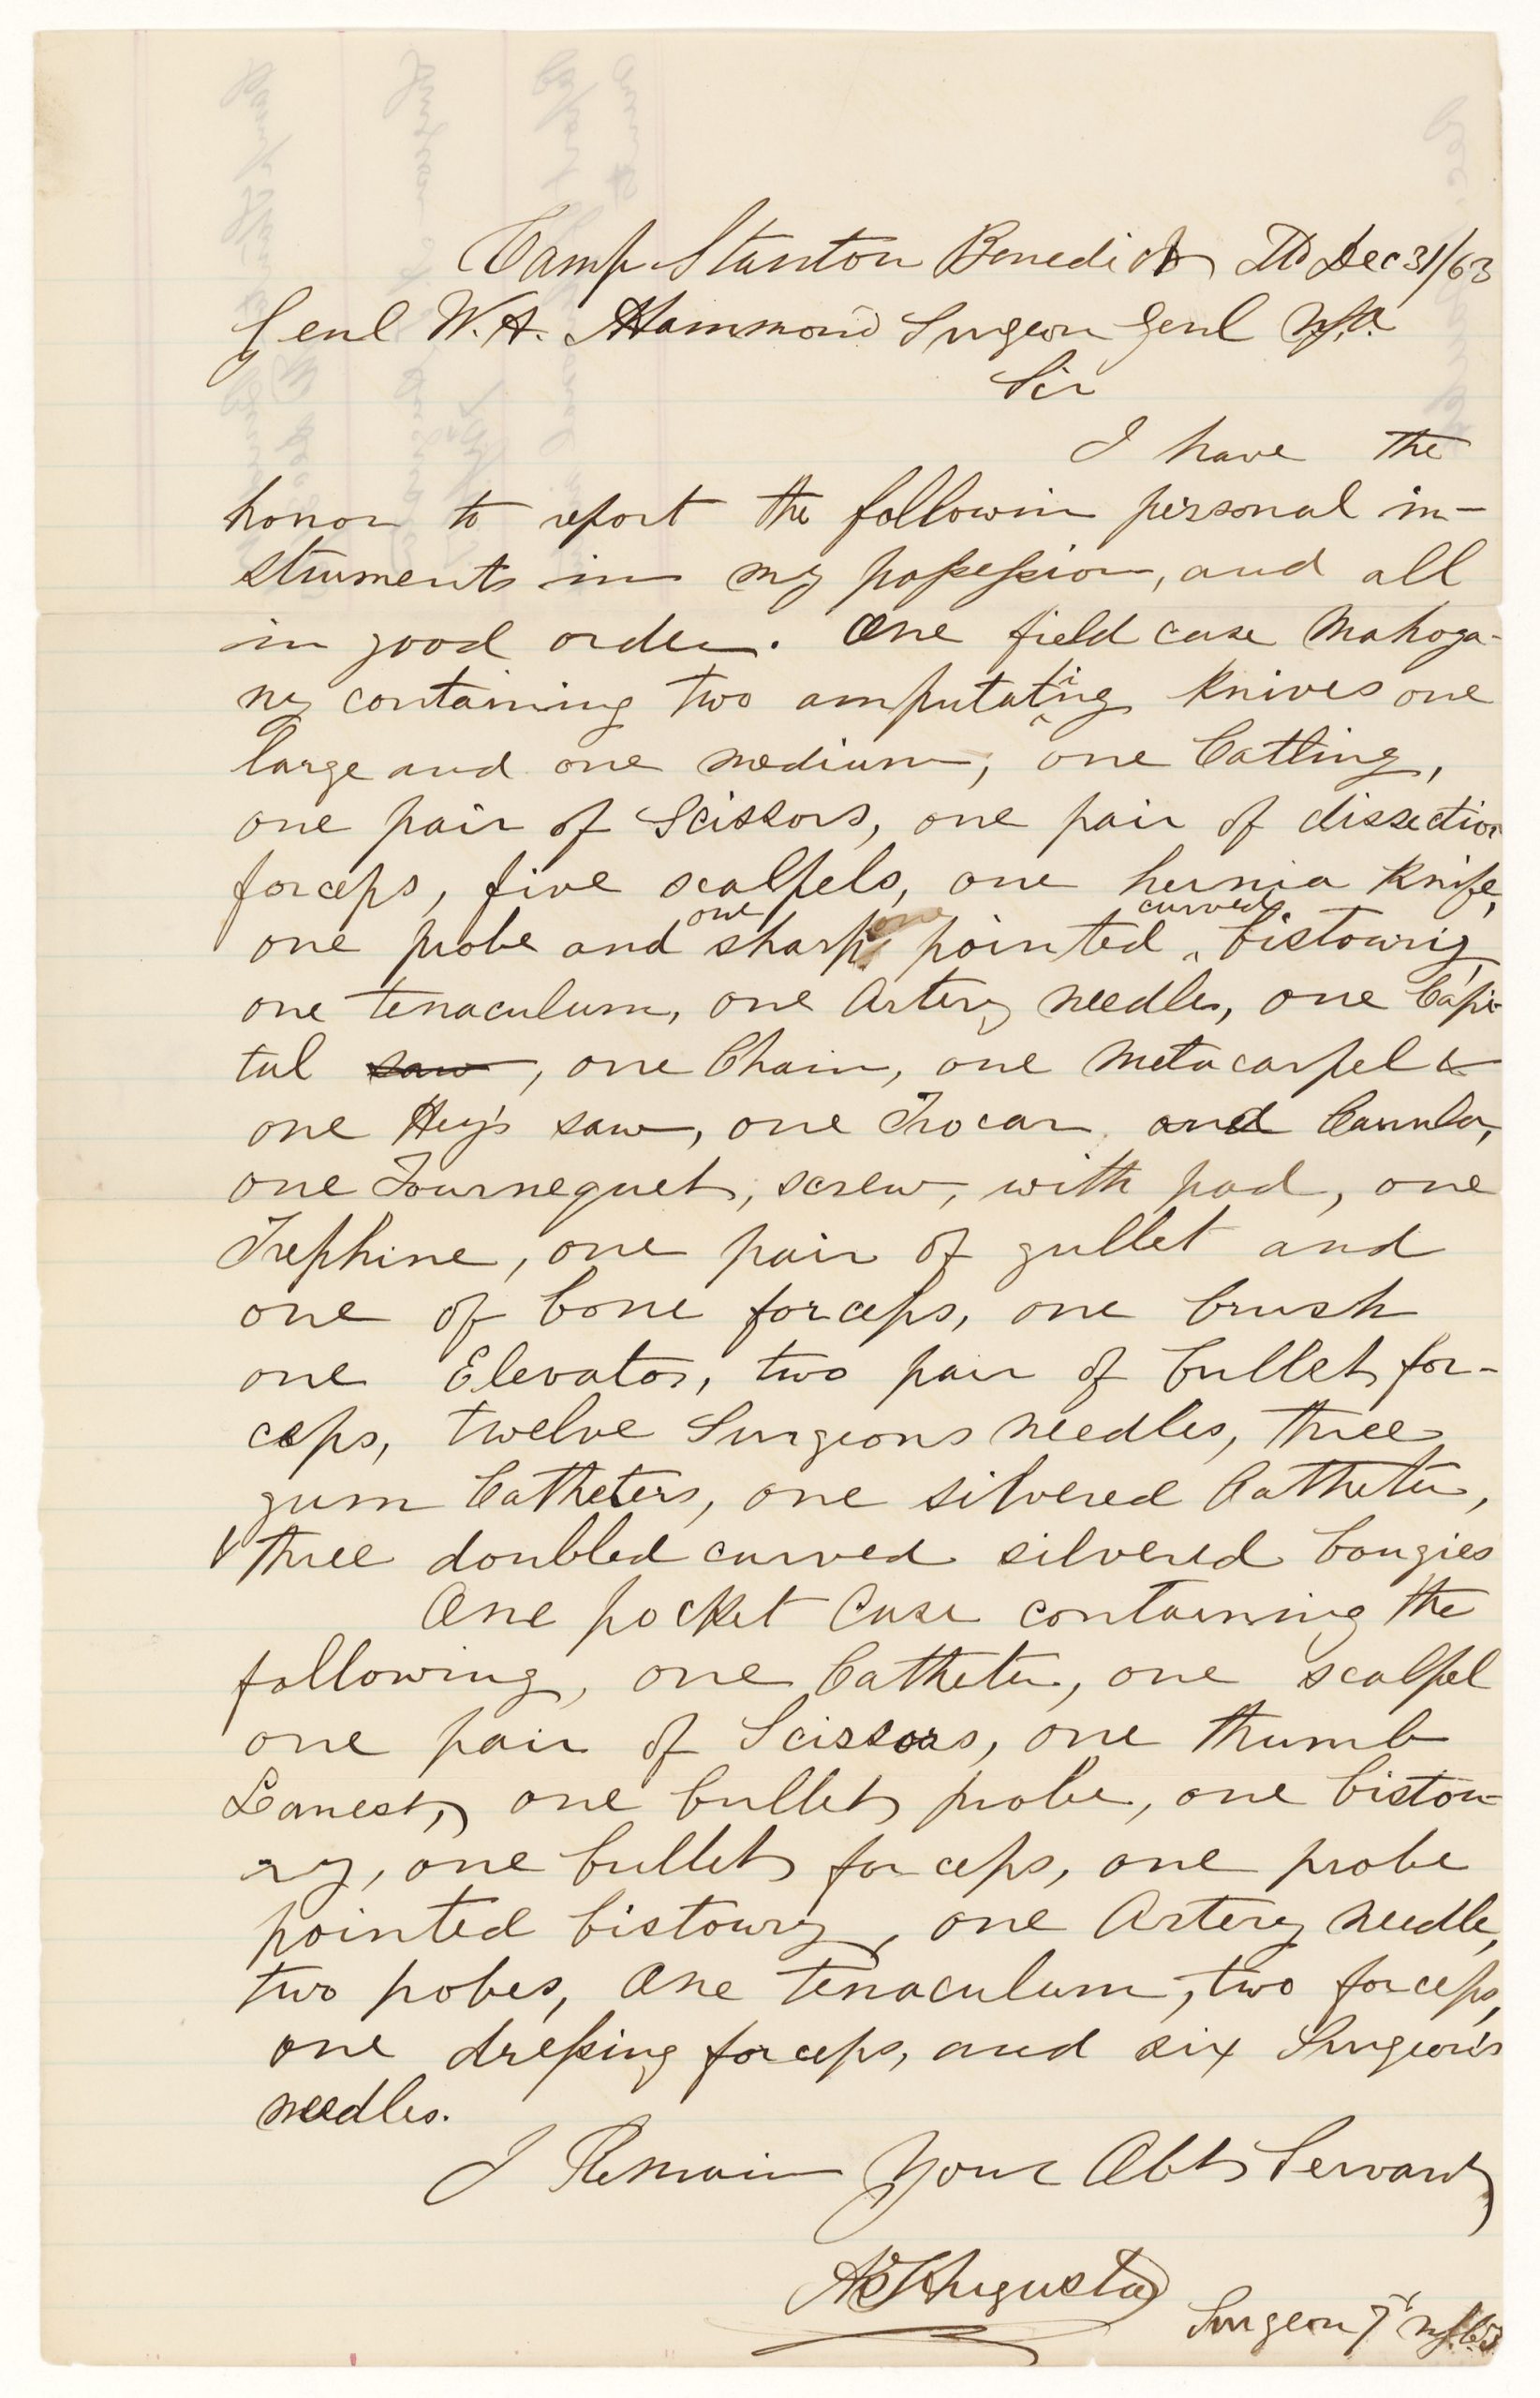 Camp Stanton Benedict Md Dec 31/63
Genl W. A. Hammond Surgeon Genl U.S.A.
Sir
I have the
honor to report the followin personal in-
struments in my possession, and all
in good order. One field case Mahoga-
ny containing two amputating Knives one
large and one medium, one Catling,
one pair of Scissors, one pair of dissection
forceps, five scalpels, one hernia Knife,
one probe and one sharp pointed curved bistoury,
one tenaculum, one Artery needle, one Capi-
tal saw, one Chain, one Metacarpel &
one Hey's saw, one Trocar and Canula,
one Tournequet, screw, with pad, one
Trephine, one pair of gullet and
one of bone forceps, one brush
one Elevator, two pair of bullet for-
ceps, twelve Surgeons needles, three
gum Catheters, one silvered Catheter,
three doubled curved silvered bougies
One pocket Case containing the
following, one Catheter, one scalpel
one pair of Scissors, one thumb
Lancet, one bullet probe, one bistou-
ry, one bullet forceps, one probe
pointed bistoury, one Artery needle,
two pobes, One tenaculum, two forceps,
one dressing forceps, and six Surgeon's
needles.
I Remain Your Obt Servant
A T Augusta
Surgeon 7th U.S.C.T.